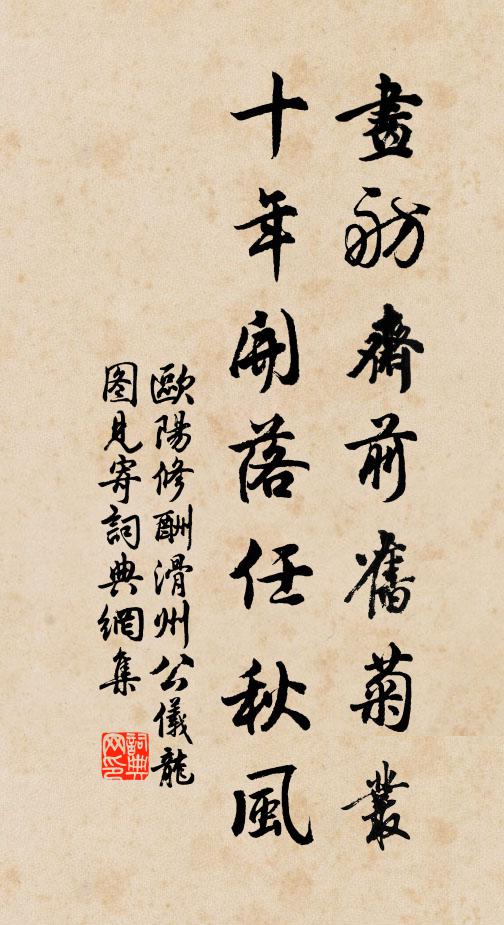 畫舫齋前舊菊叢
十年開落任秋風
歐陽修酬滑州公儀龍
图見寄詞典網集
詞典網印